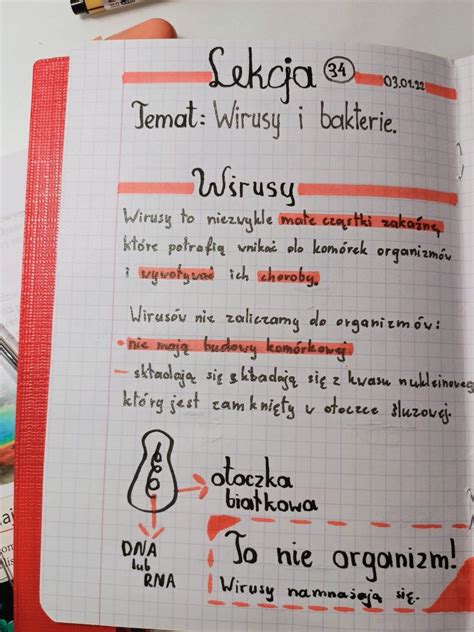 Lekcja 34 03.01.22
Temat: Wirusy i bakterie.
Wirusy
Wirusy to niezwykle małe cząstki zakaźne,
które potrafią wnikać do komórek organizmów
i wywoływać ich choroby.
Wirusów nie zaliczamy do organizmów:
• nie mają budowy komórkowej
– składają się składają się z kwasu nukleinowego
który jest zamknięty w otoczce śluzowej.
otoczka
białkowa
DNA
lub
RNA
To nie organizm!
Wirusy namnażają się.